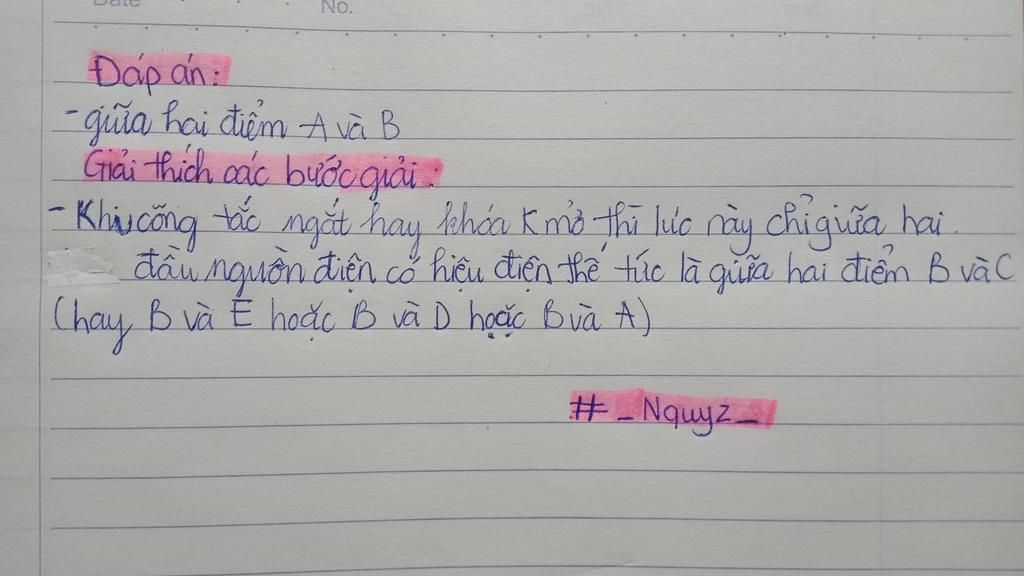 Date No.
Đáp án:
- giữa hai điểm A và B
Giải thích các bước giải:
- Khi công tắc ngắt hay khóa K mở thì lúc này chỉ giữa hai
đầu nguồn điện có hiệu điện thế tức là giữa hai điểm B và C
(hay B và E hoặc B và D hoặc B và A)
# _ Nquyz _